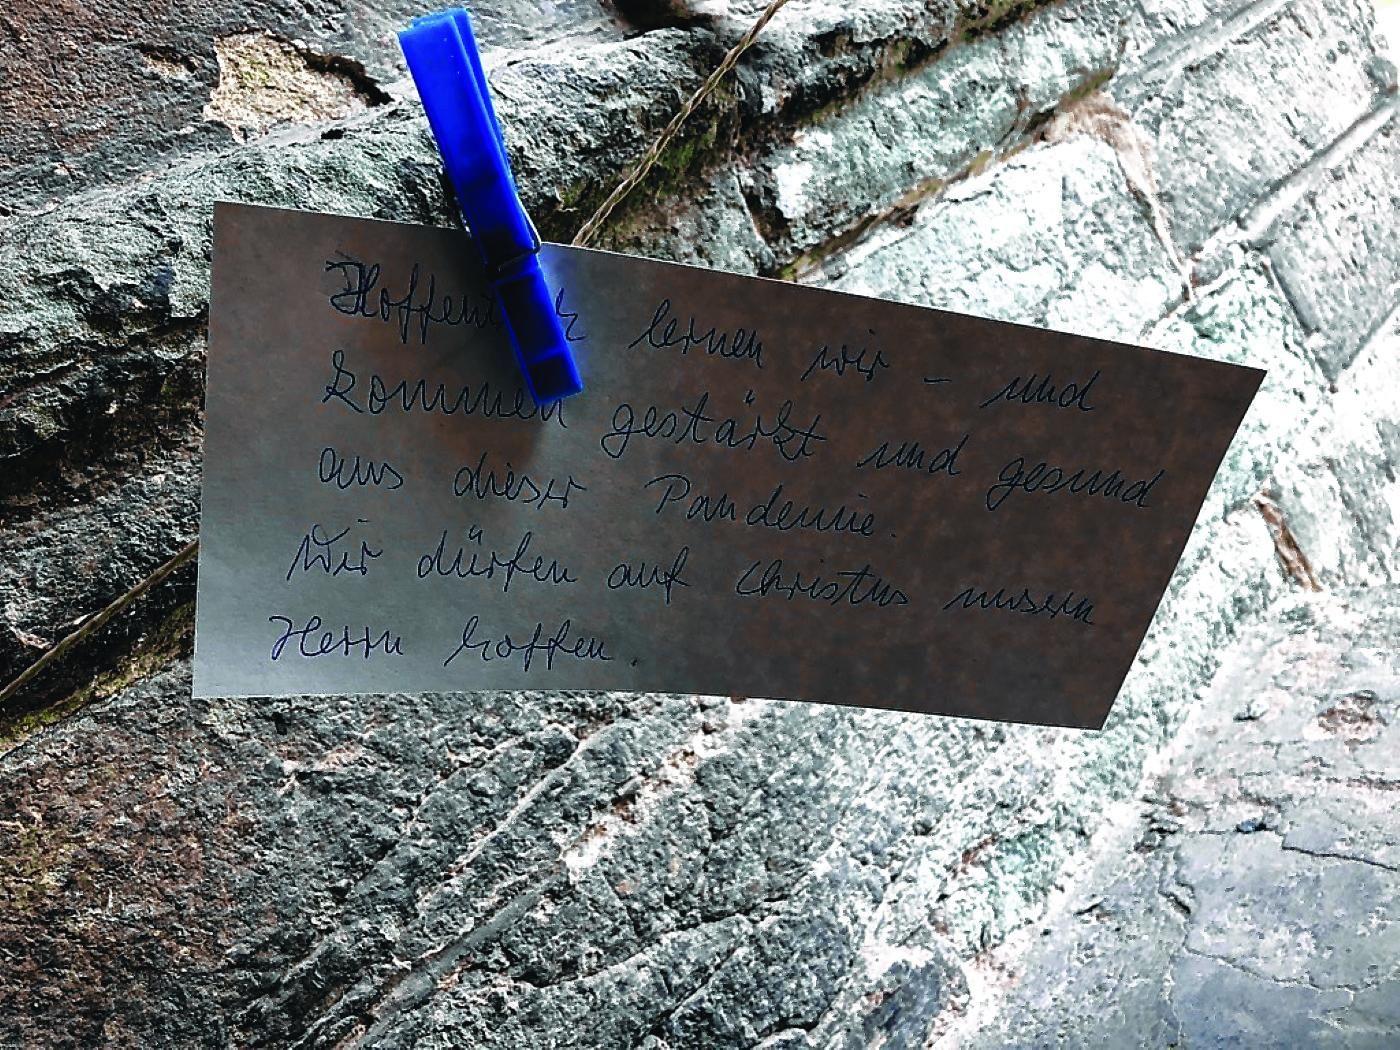 Hoffentlich lernen wir – und
kommen gestärkt und gesund
aus dieser Pandemie.
Wir dürfen auf Christus unsern
Herrn hoffen.